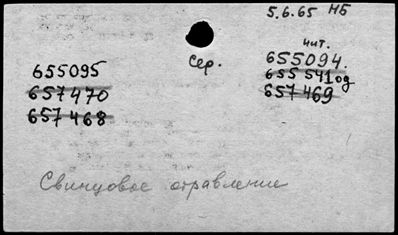 5.6.65 НБ
чит.
Сер.
655094.
655095
655541од
657470
657469
657468
Свинцовое отравление